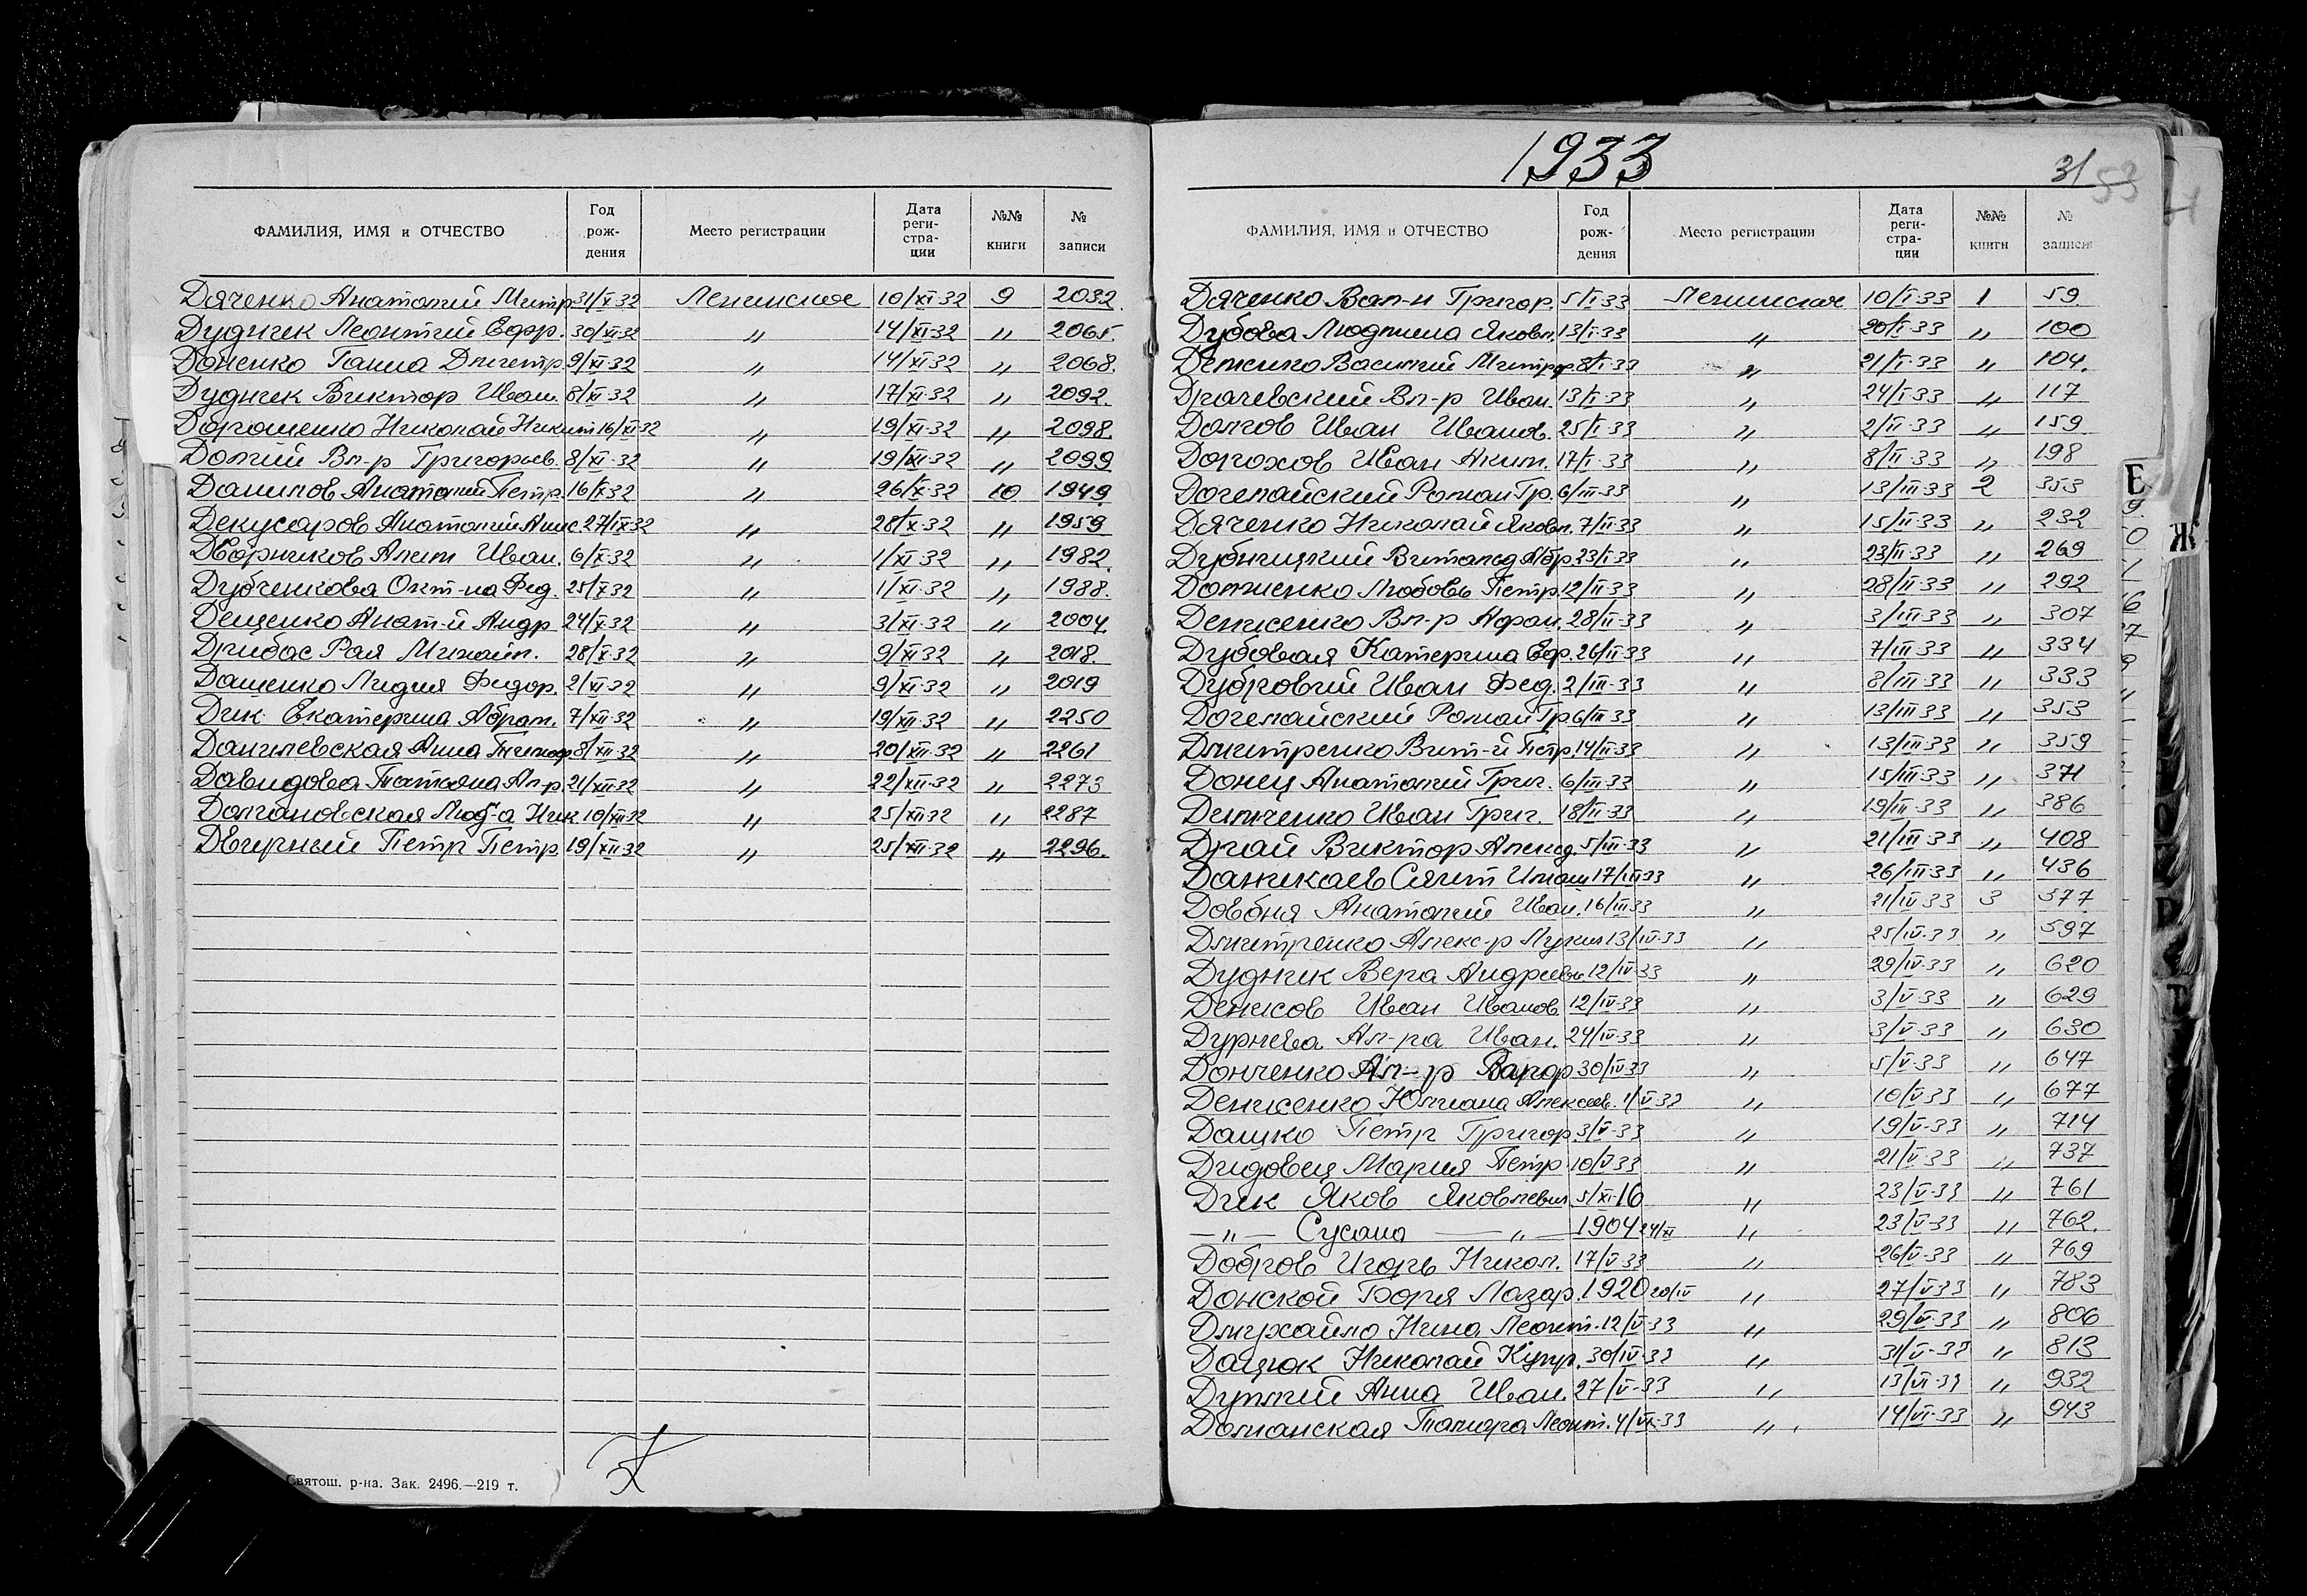 ФАМИЛИЯ, ИМЯ и ОТЧЕСТВО Год рож-дения Место регистрации Дата реги-стра-ции №№ книги № записи
Дяченко Анатолий Митр 31/X-32 Ленинское 10/XI-32 9 2032.
Дудник Леонтий Ефр. 30/XI-32 " 14/XI-32 " 2065.
Доненко Ганна Дмитр. 9/XI-32 " 14/XI-32 " 2068.
Дудник Виктор Иван. 8/XI-32 " 17/XI-32 " 2092.
Дорошенко Николай Никит 16/XI-32 " 19/XI-32 " 2098.
Долгий Вл-р Григорьев. 8/XI-32 " 19/XI-32 " 2099
Данилов Анатолий Петр. 16/X-32 " 26/X-32 10 1949.
Декусаров Анатолий 27/IX-32 " 28/X-32 " 1959.
Дворников Алек Иван. 6/X-32 " 1/XI-32 " 1982.
Дубченкова Окт-на Фед. 25/X-32 " 1/XI-32 " 1988.
Дещенко Анат-й Андр 24/X-32 " 3/XI-32 " 2004.
Дрибас Рая Михайл. 28/X-32 " 9/XI-32 " 2018.
Дащенко Лидия Федор. 2/XI-32 " 9/XI-32 " 2019
Дик Екатерина Абрам. 7/XII-32 " 19/XII-32 " 2250
Данилевская Анна Тимоф 8/XII-32 " 20/XII-32 " 2261
Давидова Татьяна Ал-р. 21/XII-32 " 22/XII-32 " 2273
Долгановская Люд-а Ник 10/XII-32 " 25/XII-32 " 2287
Двирный Петр Петр. 19/XII-32 " 25/XII-32 " 2296.
Святош. р-на. Зак. 2496.—219 т.
1933
31 53
ФАМИЛИЯ, ИМЯ и ОТЧЕСТВО Год рож-дения Место регистрации Дата реги-стра-ции №№ книги № записи
Дяченко Вал-н Григор. 5/I-33 Ленинское 10/I-33 1 59
Дубова Людмила Яковл. 13/I-33 " 20/I-33 " 100
Демченко Василий Митроф 8/I-33 " 21/I-33 " 104.
Драчевский Вл-р Иван. 13/I-33 " 24/I-33 " 117
Долгов Иван Иванов. 25/I-33 " 2/II-33 " 159
Дорохов Иван Аким. 17/I-33 " 8/II-33 " 198
Догелайский Роман Гр. 6/III-33 " 13/III-33 2 353
Дяченко Николай Яковл. 7/II-33 " 15/II-33 " 232
Дубницкий Витальд Абр 23/I-33 " 23/II-33 " 269
Долженко Любовь Петр. 12/II-33 " 28/II-33 " 292
Денисенко Вл-р Афан. 28/II-33 " 3/III-33 " 307
Дубовая Катерина Еф. 26/II-33 " 7/III-33 " 334
Дубровий Иван Фед. 2/III-33 " 8/III-33 " 333
Догелайский Роман Гр 6/III 33 " 13/III-33 " 353
Дмитренко Вит-й Петр. 14/II-33 " 13/III-33 " 359
Донец Анатолий Григ. 6/III-33 " 15/III-33 " 371
Демченко Иван Григ. 18/II-33 " 19/III-33 " 386
Драй Виктор Александ. 5/III-33 " 21/III-33 " 408
Даникаев Сяит 17/III-33 " 26/III-33 " 436
Довбня Анатолий Иван. 16/III-33 " 21/IV-33 3 577
Дмитренко Алекс-р Лукич 13/IV-33 " 25/IV-33 " 597
Дудник Вера Андреевн. 12/IV-33 " 29/IV-33 " 620
Денисов Иван Иванов 12/IV-33 " 3/V-33 " 629
Дурнева Ал-ра Иван. 24/IV-33 " 3/V-33 " 630
Донченко Ал-р 30/IV-33 " 5/V-33 " 647
Денисенко Юлиана Алексеев. 1/V-33 " 10/V-33 " 677
Дашко Петр Григор 3/V-33 " 19/V-33 " 714
Дидовец Мария Петр 10/V-33 " 21/V-33 " 737
Дик Яков Яковлевич 5/XI-16 " 23/V-33 " 761
—"— Сусана —"— 1904 24/XI " 23/V-33 " 762.
Добров Игорь Никол. 17/V-33 " 26/V-33 " 769
Донской Боря Лазар. 1920 20/IV " 27/V-33 " 783
Дмухайло Нина Леонт. 12/V-33 " 29/V-33 " 806
Дацюк Николай Купр. 30/IV-33 " 31/V-33 " 813
Дуплий Анна Иван. 27/V-33 " 13/VI-33 " 932
Доманская Тамара Леонт. 4/VI-33 " 14/VI-33 " 943
Е
Ж